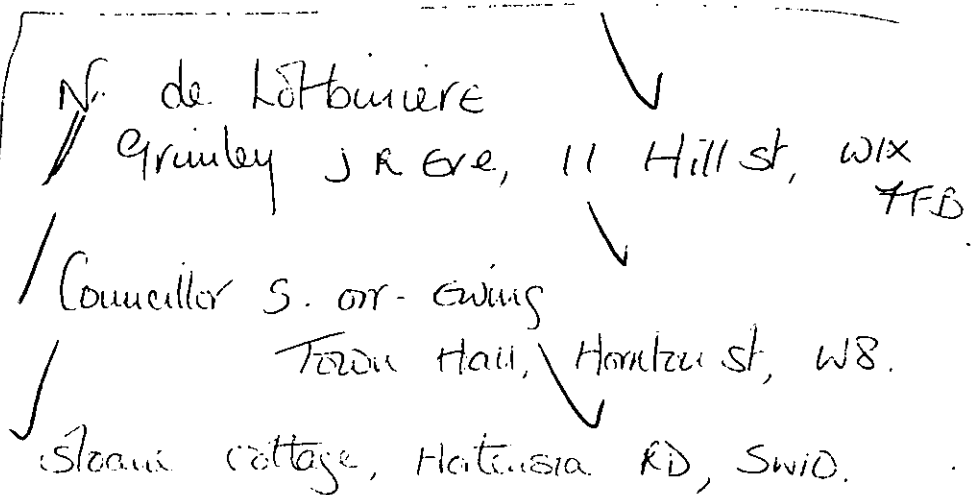 N. de Lôtbiniere
Grimley J R Eve, 11 Hill st, W1X
7FB.
Councillor S. Orr-Ewing
Town Hall, Hornton st, W8.
Sloane Cottage, Hortensia RD, SW10.